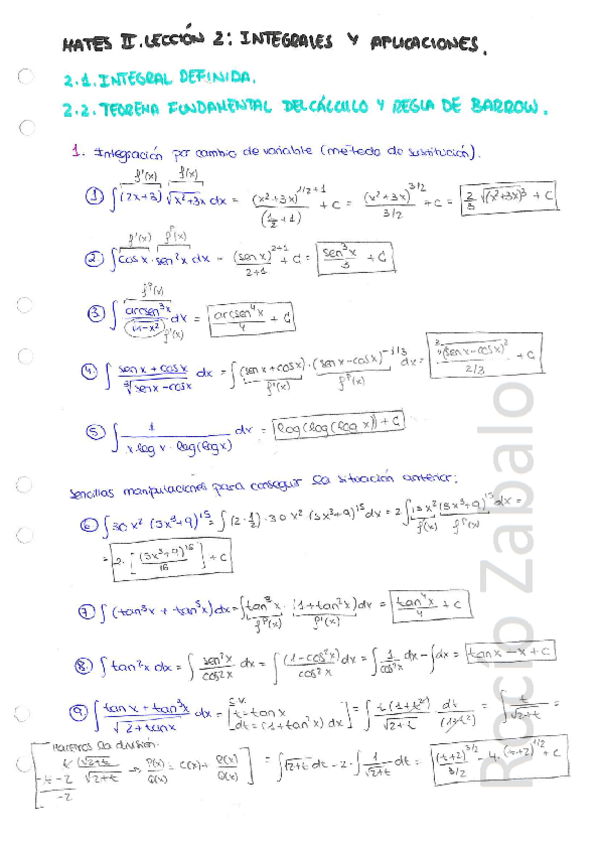 MATES II. LECCIÓN 2: INTEGRALES Y APLICACIONES.
2.1. INTEGRAL DEFINIDA.
2.2. TEOREMA FUNDAMENTAL DEL CÁLCULO Y REGLA DE BARROW.
1. Integración por cambio de variable (método de sustitución).
f'(x) f(x)
① ∫(2x+3) √(x²+3x) dx = (x²+3x)^(1/2+1) / (1/2+1) + C = (x²+3x)^(3/2) / (3/2) + C = 2/3 √(x²+3x)³ + C
f'(x) fᵖ(x)
② ∫cos x · sen²x dx = (sen x)^(2+1) / (2+1) + C = sen³x / 3 + C
fᵖ(x)
③ ∫ arcsen³x / √(1-x²) dx = arcsen⁴x / 4 + C
f'(x)
④ ∫ (sen x + cos x) / ³√(sen x - cos x) dx = ∫(sen x + cos x) · (sen x - cos x)^(-1/3) dx = ³√(sen x - cos x)² / (2/3) + C
f'(x) fᵖ(x)
⑤ ∫ 1 / (x log x · log(log x)) dx = log(log(log x)) + C
Sencillas manipulaciones para conseguir la situación anterior:
⑥ ∫30x² (5x³+9)¹⁵ = ∫(2·1/2)·30x² (5x³+9)¹⁵ dx = 2∫15x² (5x³+9)¹⁵ dx =
f'(x) fᵖ(x)
= 2·[(5x³+9)¹⁶ / 16] + C
⑦ ∫(tan³x + tan⁵x) dx = ∫tan³x · (1+tan²x) dx = tan⁴x / 4 + C
fᵖ(x) f'(x)
⑧ ∫tan²x dx = ∫ sen²x / cos²x dx = ∫ (1-cos²x) / cos²x dx = ∫ 1/cos²x dx - ∫dx = tan x - x + C
⑨ ∫ (tan x + tan³x) / √(2+tan x) dx = [C.V. t = tan x dt = (1+tan²x) dx] = ∫ t(1+t²) / √(2+t) · dt / (1+t²) = ∫ t / √(2+t) =
Hacemos la división.
t √(2+t)
-t-2 √(2+t) → P(x)/Q(x) = C(x) + R(x)/Q(x)
-2
= ∫√(2+t) dt - 2·∫ 1/√(2+t) dt = (t+2)^(3/2) / (3/2) - 4·(t+2)^(1/2) + C
Rocío Zabalo